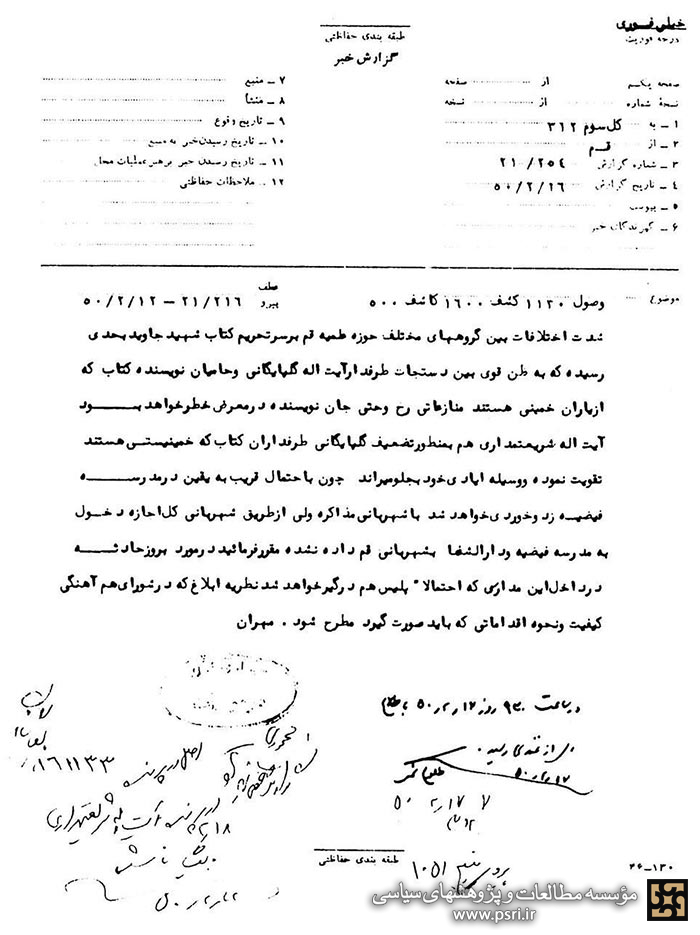 خیلی فوری
درجه فوریت
طبقه بندی حفاظتی
گزارش خبر
صفحه یکم از صفحه
نسخهٔ شماره از نسخه
۱ ـ به کل سوم ۳۱۲
۲ ـ از قم
۳ ـ شماره گزارش ۲۱/۲۵۴
۴ ـ تاریخ گزارش ۵۰/۲/۱۶
۵ ـ پیوست
۶ ـ گیرندگان خبر
۷ ـ منبع
۸ ـ منشأ
۹ ـ تاریخ وقوع
۱۰ ـ تاریخ رسیدن خبر به منبع
۱۱ ـ تاریخ رسیدن خبر برهبر عملیات محل
۱۲ ـ ملاحظات حفاظتی
موضوع وصول ۱۱۳۰ کشف ۱۶۰۰ کاشف ۵۰۰ عطف پیرو ۲۱/۲۱۶ – ۵۰/۲/۱۲
شدت اختلافات بین گروههای مختلف حوزه علمیه قم برسر تحریم کتاب شهید جاوید بحدی
رسیده که به ظن قوی بین دستجات طرفدار آیت اله گلپایگانی وحامیان نویسنده کتاب که
ازیاران خمینی هستند منازعاتی رخ وحتی جان نویسنده درمعرض خطرخواهد بود
آیت اله شریعتمداری هم بمنظورتضعیف گلپایگانی طرفداران کتاب که خمینیستی هستند
تقویت نموده ووسیله ایادی خود بجلومیراند چون باحتمال قریب به یقین درمدرسه
فیضیه زد وخوردی خواهد شد باشهربانی مذاکره ولی ازطریق شهربانی کل اجازه دخول
به مدرسه فیضیه ودارالشفا بشهربانی قم داده نشده مقررفرمائید درمورد بروزحادثه
درداخل این مدارس که احتمالا" پلیس هم درگیرخواهد شد نظریه ابلاغ که درشورای هم آهنگی
کیفیت ونحوه اقداماتی که باید صورت گیرد مطرح شود . مهران
در ساعت ۹۳۰ روز
اصل در پرونده
۱۶۱۱۳۳
در پرونده آیت اله شریعتمداری
بایگانی شود
طبقه بندی حفاظتی
۱۰۵۱
۲۶-۱۳۰
مؤسسه مطالعات و پژوهشهای سیاسی
www.psri.ir